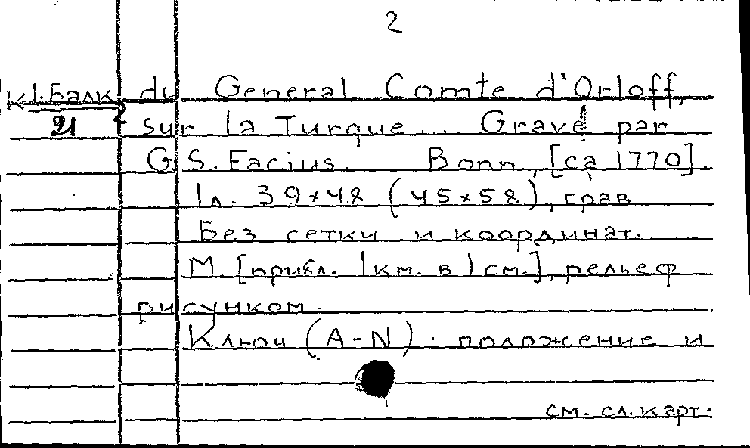 2
К 1-Балк du General Comte d'Orloff,
21 sur la Turque ... Gravé par
G.S. Facius. Bonn, [ca 1770].
1л. 39×48 (45×58), грав.
Без сетки и координат.
М. [прибл. 1 км. в 1 см.], рельеф
рисунком.
Ключ (A-N): положение и
см. сл. карт.